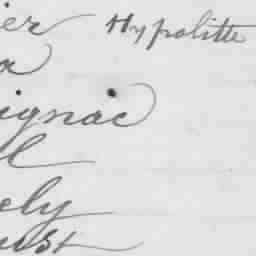 ier Hypolitte
a
ignac
l
ely
ust